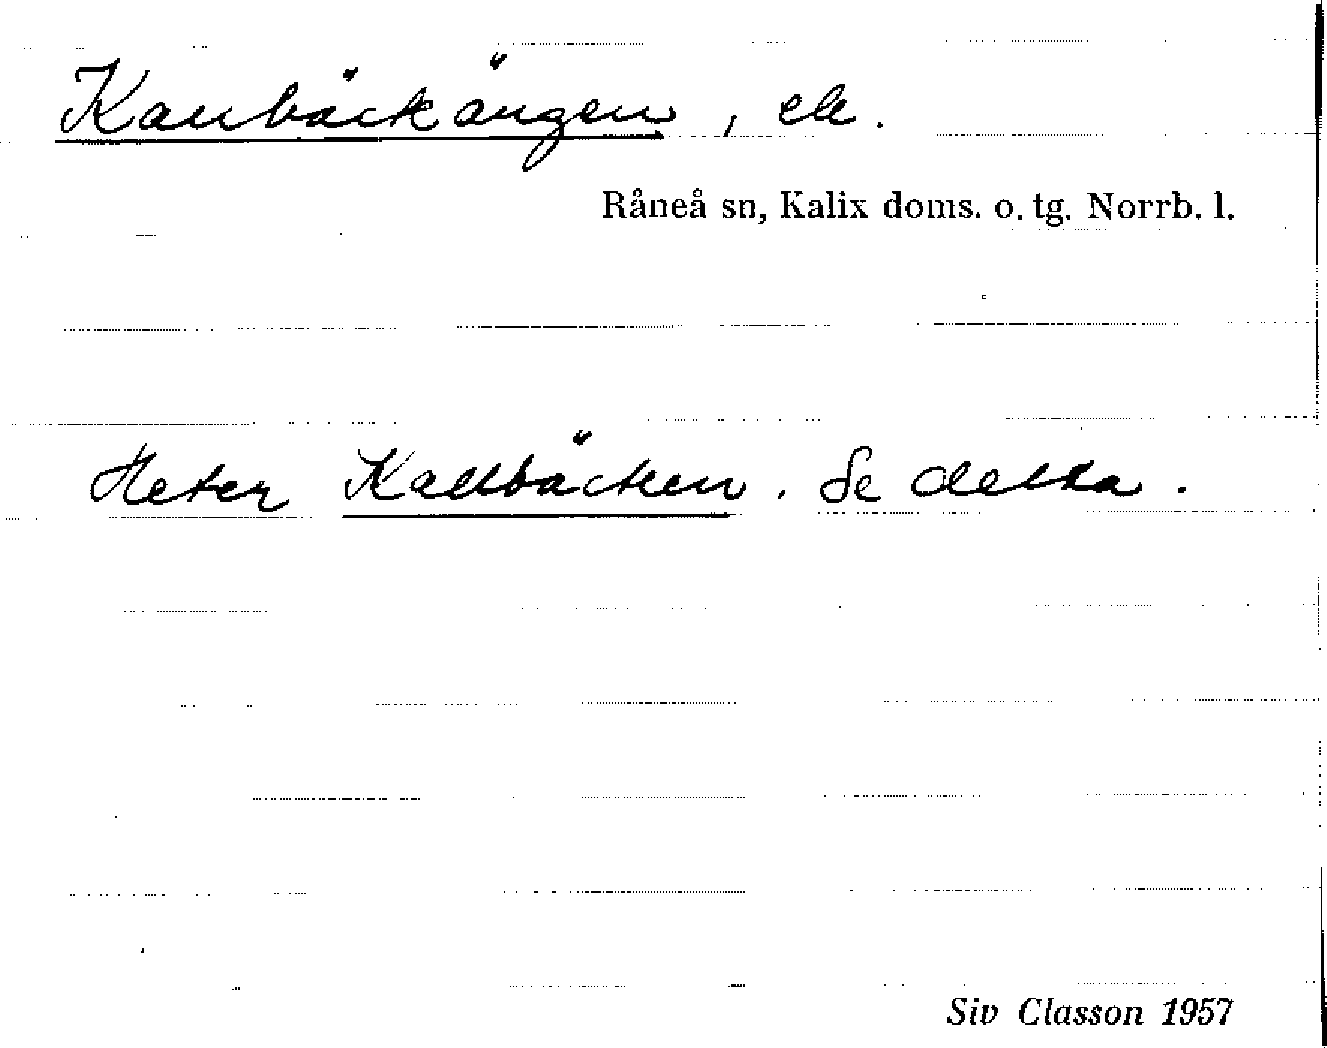 Kanbäckängen, ek.
Råneå sn, Kalix doms. o. tg. Norrb. l.
Heter Kallbäcken. Se detta.
Siv Classon 1957